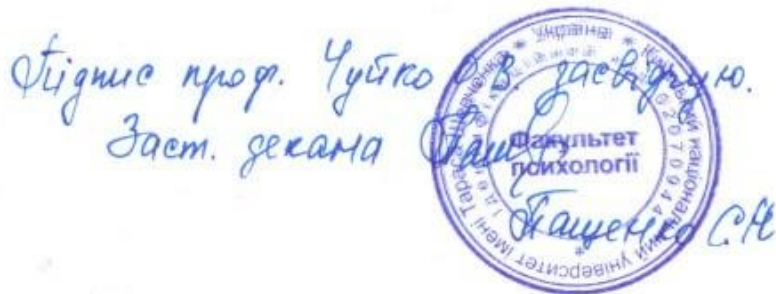 Підпис проф. Чуйко О.В. засвідчую.
Заст. декана
Пащенко С.Ю
Україна * Київський національний університет імені Тараса Шевченка *
Ідентифікаційний код 02070944
Факультет
психології